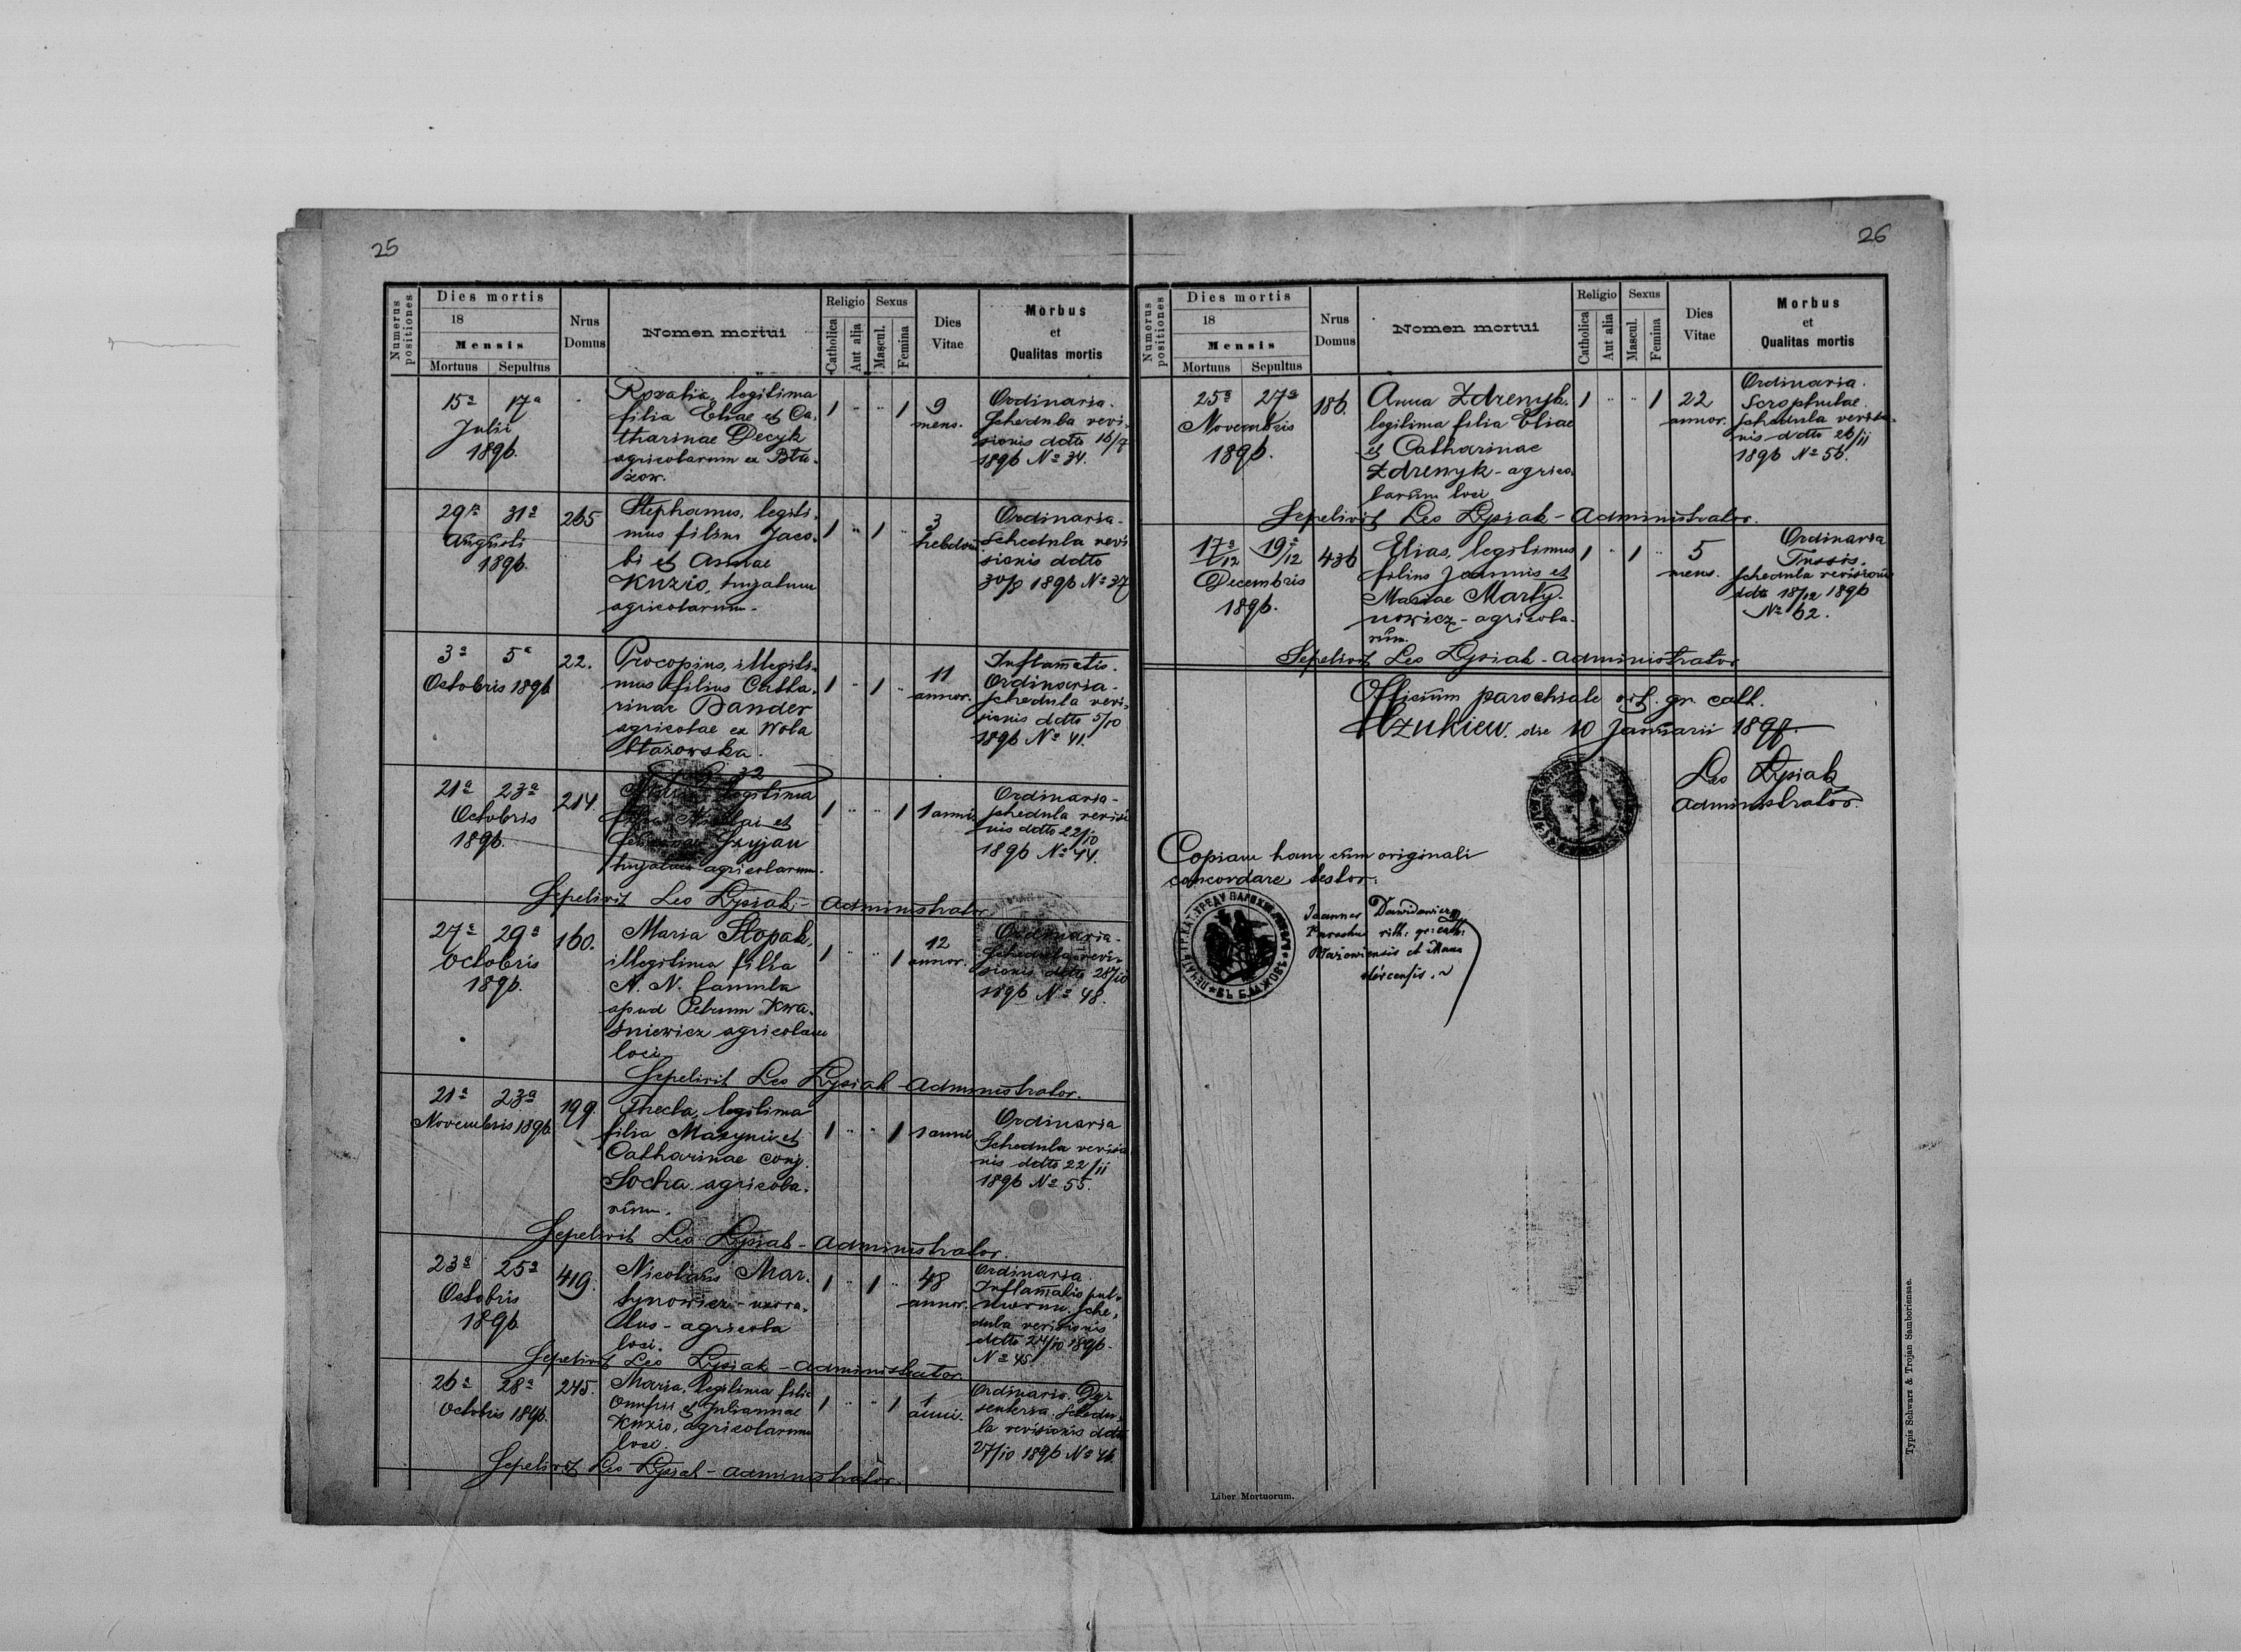 25
Numerus positiones
Dies mortis
18
Mensis
Mortuus Sepultus
Nrus Domus
Nomen mortui
Religio
Catholica
Aut alia
Sexus
Mascul.
Femina
Dies Vitae
Morbus
et
Qualitas mortis
15ª 17ª
Julii
1896.
Rozalia, legitima
filia Eliae et Ca-
tharinae Decyk
agricolarum ex Bła-
żow.
1 " " 1
9
mens.
Ordinaria.
Schedula revi-
sionis ddto 16/7
1896 Nº 34.
29ª 31ª
Augusti
1896.
265
Stephanus, legiti-
mus filius Jaco-
bi et Annae
Kuzio, hujatum
agricolarum -
1 " 1 "
3
hebdom.
Ordinaria -
Schedula revi
sionis ddto
30/8 1896 Nº 37
3ª 5ª
Octobris 1896
22.
Procopius, illegiti-
mus filius Catha-
rinae Bander
agricolae ex Wola
błażowska.
1 " 1 "
11
annor.
Inflam̄atio.
Ordinaria -
Schedula revi-
sionis ddto 5/10
1896 Nº 41.
21ª 23ª
Octobris
1896.
214.
32
legitima
et
Szyjan
agricolarum.
1 " " 1
1 anni
Ordinaria -
Schedula revisi
nis ddto 22/10
1896 Nº 44.
Sepelivit Leo Łysiak - Administrator
27ª 29ª
Octobris
1896.
160.
Maria Stopak,
illegitima filia
N. N. famula
apud Petrum Kwa-
śniewicz agricolam
loci
1 " " 1
12
annor.
Ordinaria -
Schedula revi-
sionis ddto 28/10
1896 Nº 48.
Sepelivit Leo Łysiak - Administrator.
21ª 23ª
Novembris 1896.
199.
Thecla, legitima
filia Maxymi et
Catharinae conj.
Socha agricola-
rum.
1 " " 1
1 anni
Ordinaria
Schedula revisio
nis ddto 22/11
1896 Nº 55.
Sepelivit Leo Łysiak - Administrator.
23ª 25ª
Octobris
1896
419.
Nicolaus Mar-
tynowicz - uxora-
tus - agricola
loci.
1 " 1 "
48
annor.
Ordinaria.
Inflam̄atio pul-
monum. Sche-
dula revisionis
ddto 24/10 1896.
Nº 45
Sepelivit Leo Łysiak - Administrator
26ª 28ª
Octobris 1896.
245.
Maria, legitima filia
Onufrii et Juliannae
Kuzio, agricolarum
loci.
1 " " 1
1
anni.
Ordinaria. Dys-
senteria. Schedu-
la revisionis ddto
27/10 1896 Nº 46.
Sepelivit Leo Łysiak - Administrator.
26
Numerus positiones
Dies mortis
18
Mensis
Mortuus Sepultus
Nrus Domus
Nomen mortui
Religio
Catholica
Aut alia
Sexus
Mascul.
Femina
Dies Vitae
Morbus
et
Qualitas mortis
25ª 27ª
Novembris
1896.
186.
Anna Zdrenyk.
legitima filia Eliae
et Catharinae
Zdrenyk - agrico-
larum loci
1 " " 1
22
annor.
Ordinaria.
Scrophulae.
Schedula revisio-
nis ddto 26/11
1896 Nº 56.
Sepelivit Leo Łysiak - Administrator.
17ª/12 19ª/12
Decembris
1896.
436
Elias, legitimus
filius Joannis et
Mariae Marty-
nowicz - agricola-
rum.
1 " 1 "
5
mens.
Ordinaria
Tussis.
Schedula revisionis
ddto 18/12 1896
Nº 62.
Sepelivit Leo Łysiak - Administrator
Officium parochiale rit. gr. cath.
die 10 Januarii 1897.
Leo Łysiak
Administrator.
Copiam hanc cum originali
concordare testor.
Joannes Dawidowicz
Parochus rit: gr: cath:
Błażowiensis
Liber Mortuorum.
Typis Schwarz & Trojan Samboriensae.